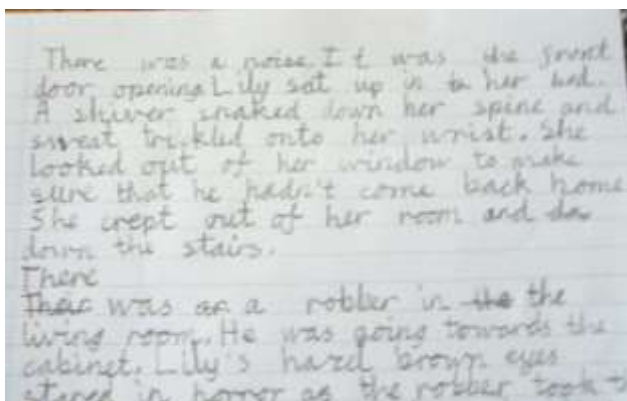 There was a noise. It was the front
door opening Lily sat up in to her bed.
A shiver snaked down her spine and
sweat trickled onto her wrist. She
looked out of her window to make
sure that he hadn't come back home
She crept out of her room and do
down the stairs.
There
Their was an a robber in the the
living room. He was going towards the
cabinet. Lily's hazel brown eyes
stared in horror as the robber took